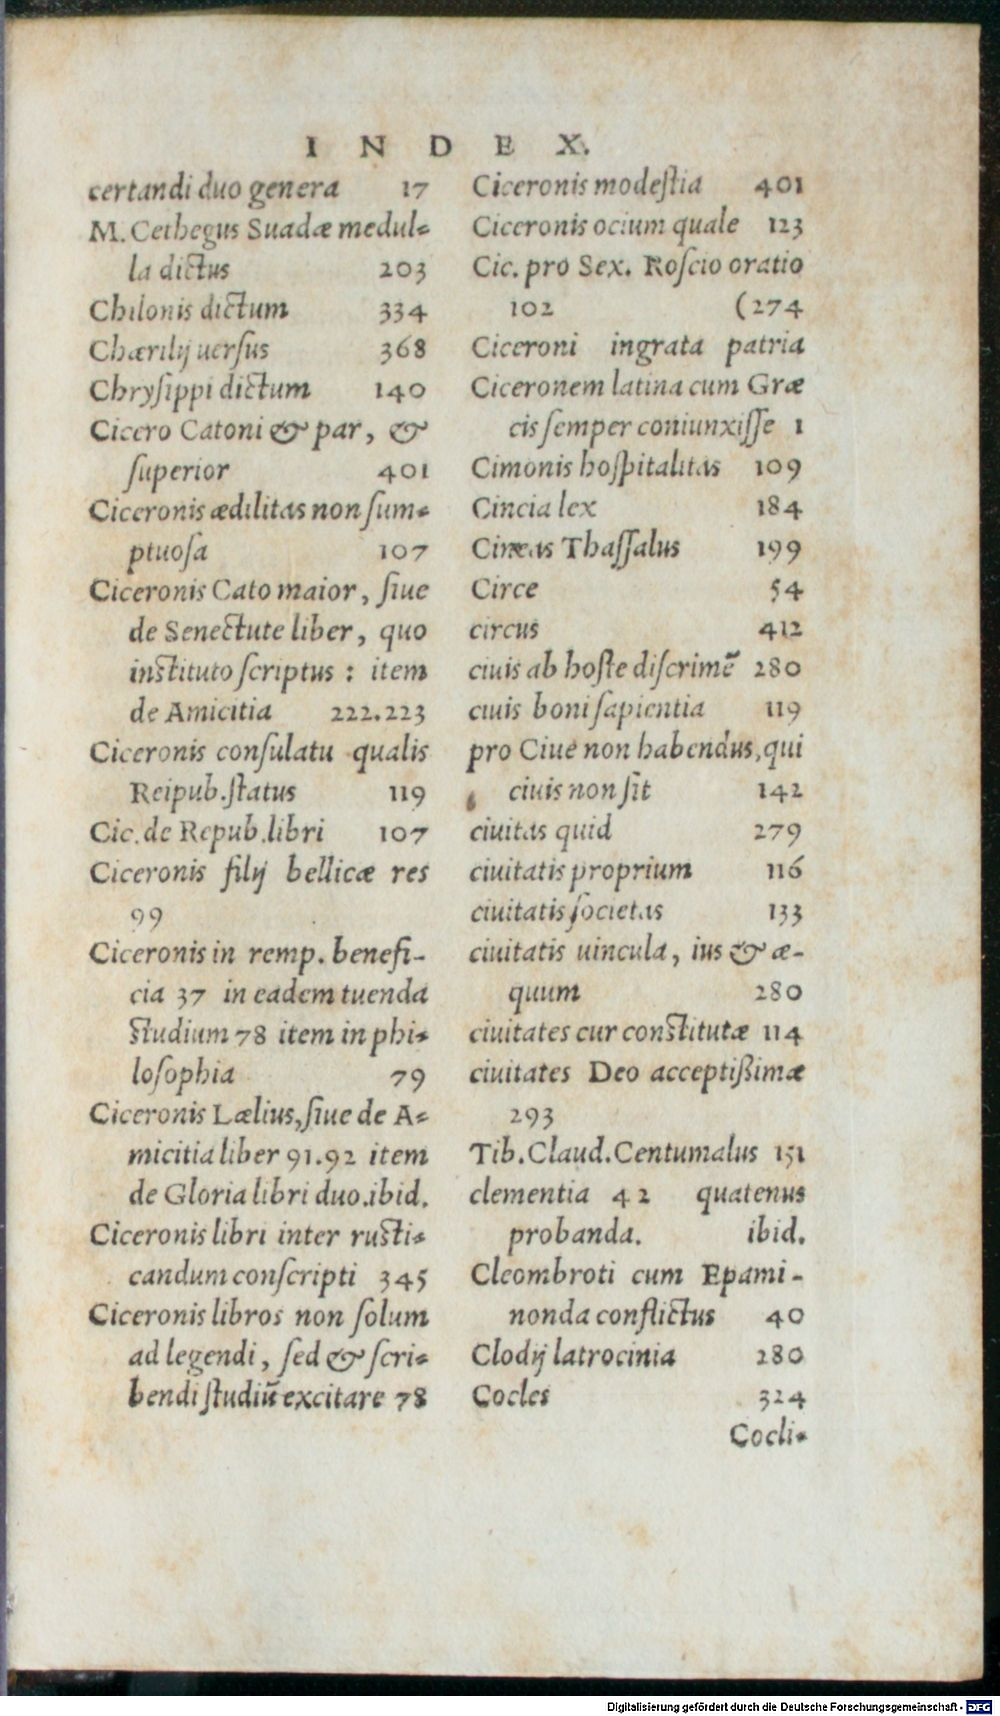 INDEX.
certandi duo genera 17
M. Cethegus Suadæ medul-
la dictus 203
Chilonis dictum 334
Chœrilij uersus 368
Chrysippi dictum 140
Cicero Catoni & par, &
superior 401
Ciceronis ædilitas non sum-
ptuosa 107
Ciceronis Cato maior, siue
de Senectute liber, quo
instituto scriptus : item
de Amicitia 222.223
Ciceronis consulatu qualis
Reipub. status 119
Cic. de Repub. libri 107
Ciceronis filij bellicæ res
99
Ciceronis in remp. benefi-
cia 37 in eadem tuenda
studium 78 item in phi-
losophia 79
Ciceronis Lælius, siue de A-
micitia liber 91.92 item
de Gloria libri duo. ibid.
Ciceronis libri inter rusti-
candum conscripti 345
Ciceronis libros non solum
ad legendi, sed & scri-
bendi studiū excitare 78
Ciceronis modestia 401
Ciceronis ocium quale 123
Cic. pro Sex. Roscio oratio
102 (274
Ciceroni ingrata patria
Ciceronem latina cum Græ
cis semper coniunxisse 1
Cimonis hospitalitas 109
Cincia lex 184
Cineas Thassalus 199
Circe 54
circus 412
ciuis ab hoste discrimē 280
ciuis boni sapientia 119
pro Ciue non habendus, qui
ciuis non sit 142
ciuitas quid 279
ciuitatis proprium 116
ciuitatis societas 133
ciuitatis uincula, ius & æ-
quum 280
ciuitates cur constitutæ 114
ciuitates Deo acceptißimæ
293
Tib. Claud. Centumalus 151
clementia 42 quatenus
probanda. ibid.
Cleombroti cum Epami-
nonda conflictus 40
Clodij latrocinia 280
Cocles 324
Cocli-
Digitalisierung gefördert durch die Deutsche Forschungsgemeinschaft - DFG